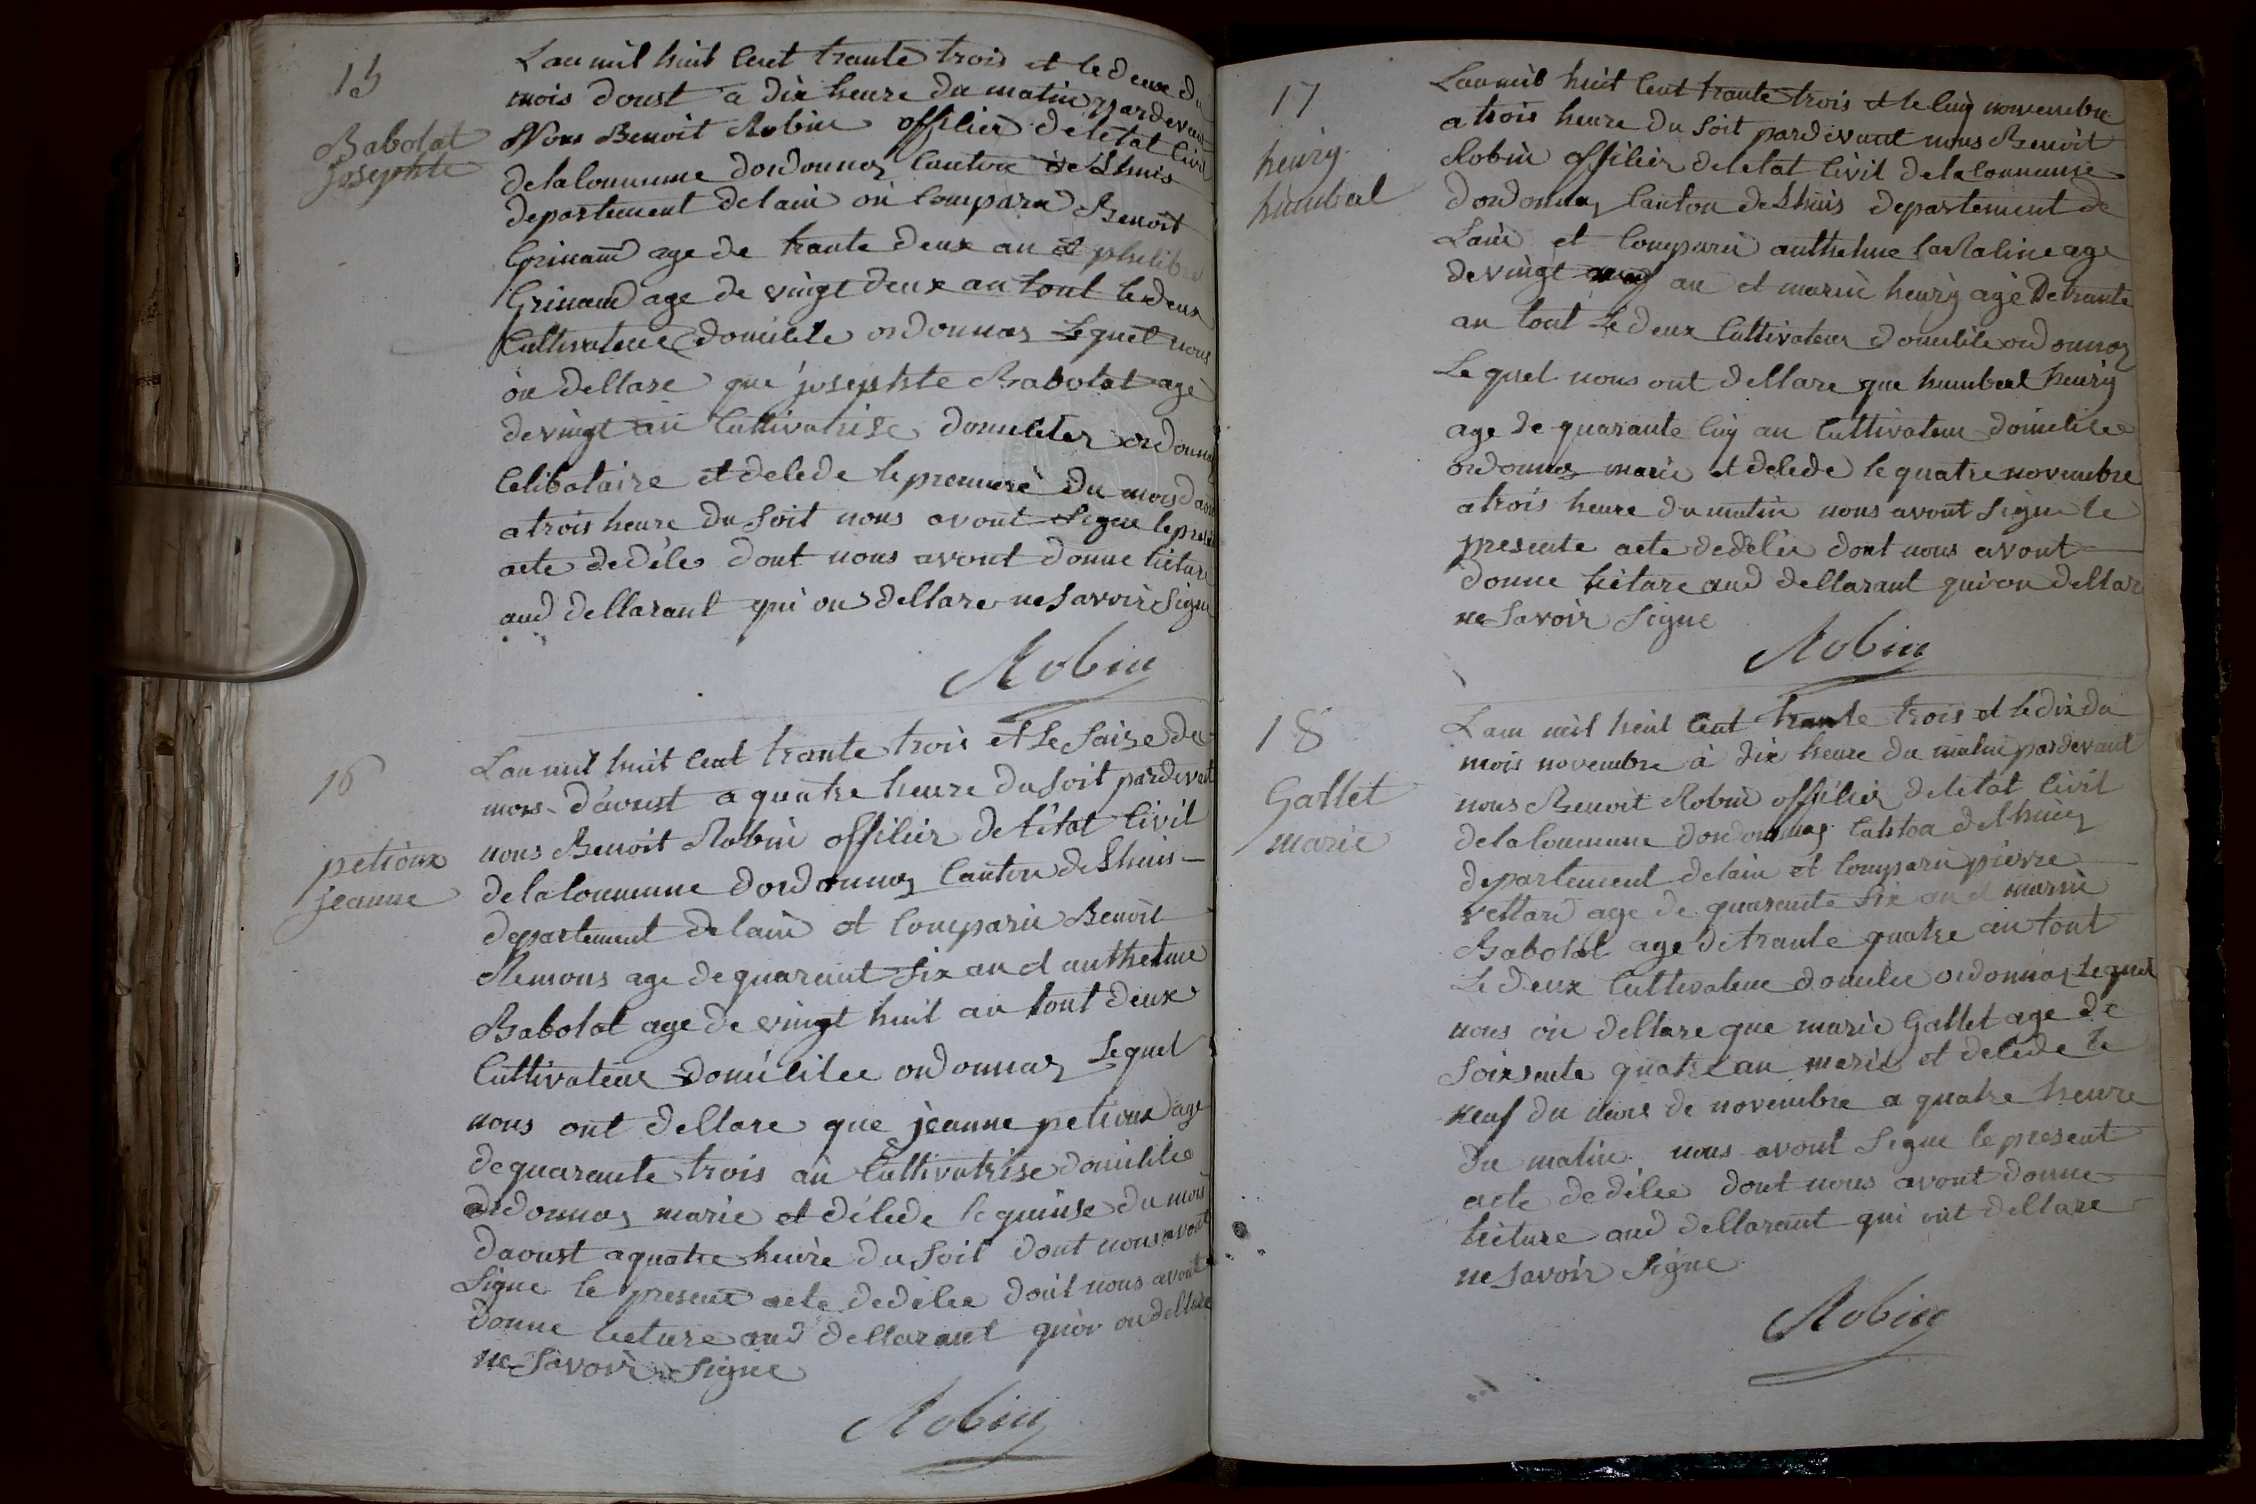 15
Babolat
josephte
Lan mil huit Cent trante trois et le deux du
mois doust a dix heure du matin pardevant
Nous Benoit Robin offilier deletat Civil
delaloummune dordonnaz Canton de Lhuis
departement delain on Comparu Benoit
Grinand age de trante deux an et philibe
Grinand age de vingt deux an tout le deux
Cultivateur domilile ordonnaz Lequel nous
on dellare que josephte Babolat age
de vingt an Cultivatrise domililer ordonnaz
Celibataire et delede le premiere du mois daou
a trois heure du Soit nous avont Signe le prese
acte dedéles dont nous avont donne lictur
aud dellarant qui on dellare ne Savoir Signe
Robin
16
petioux
jeanne
Lan mil huit Cent trante trois et Le Saize du
mois d'avoust a quatre heure du Soit pardevant
nous Benoit Robin offilier deletat Civil
delaloummune dordonnaz Canton de Lhuis
departement delain et Comparu Benoit
Remons age de quarant Six an et anthelme
Babolat age de vingt huit an tout deux
Cultivateur domililee ordonnaz Lequel
nous ont dellare que jeanne petioux age
de quarante trois an Cultivatrise domililee
ordonnaz marie et délede le quinse du mois
daoust a quatre heure du Soit dont nous avont
Signe le present acte dedélee dont nous avont
donne licture aud dellarant qu'on dellare
ne Savoir Signe
Robin
17
henry
humbert
Lan mil huit Cent trante trois et le Cinq novembre
a trois heure du Soit pardevant nous Benoit
Robin offilier deletat Civil delaloummune
dordonnaz Canton de Lhuis departement de
Lain et Comparu anthelme
de vingt an et marin henry age de trante
an tout Le deux Cultivateur domilile ordonnaz
Le quel nous ont dellare que humbert henry
age de quarante Cinq an Cultivateur domililee
ordonnaz marie et delede le quatre novembre
a trois heure du matin nous avont Signe le
presente acte dedélée dont nous avont
donne licture aud dellarant qui on dellar
ne Savoir Signe
Robin
18
Gallet
marie
Lan mil huit Cent trante trois et le dix du
mois novembre à dix heure du matin pardevant
nous Benoit Robin offilier deletat Civil
delaloummune dordonnaz Canton de Lhuis
departement delain et Comparu pierre
vettard age de quarente Six an et marin
Babolat age de trante quatre an tout
Le deux Cultivateur domilie ordonnaz Lequel
nous on dellare que marie Gallet age de
Soixsente quatre an marie et delede le
neuf du mois de novembre a quatre heure
du matin nous avont Signe le present
acte dedélee dont nous avont donne
licture aud dellarant qui ont dellare
ne Savoir Signe
Robin